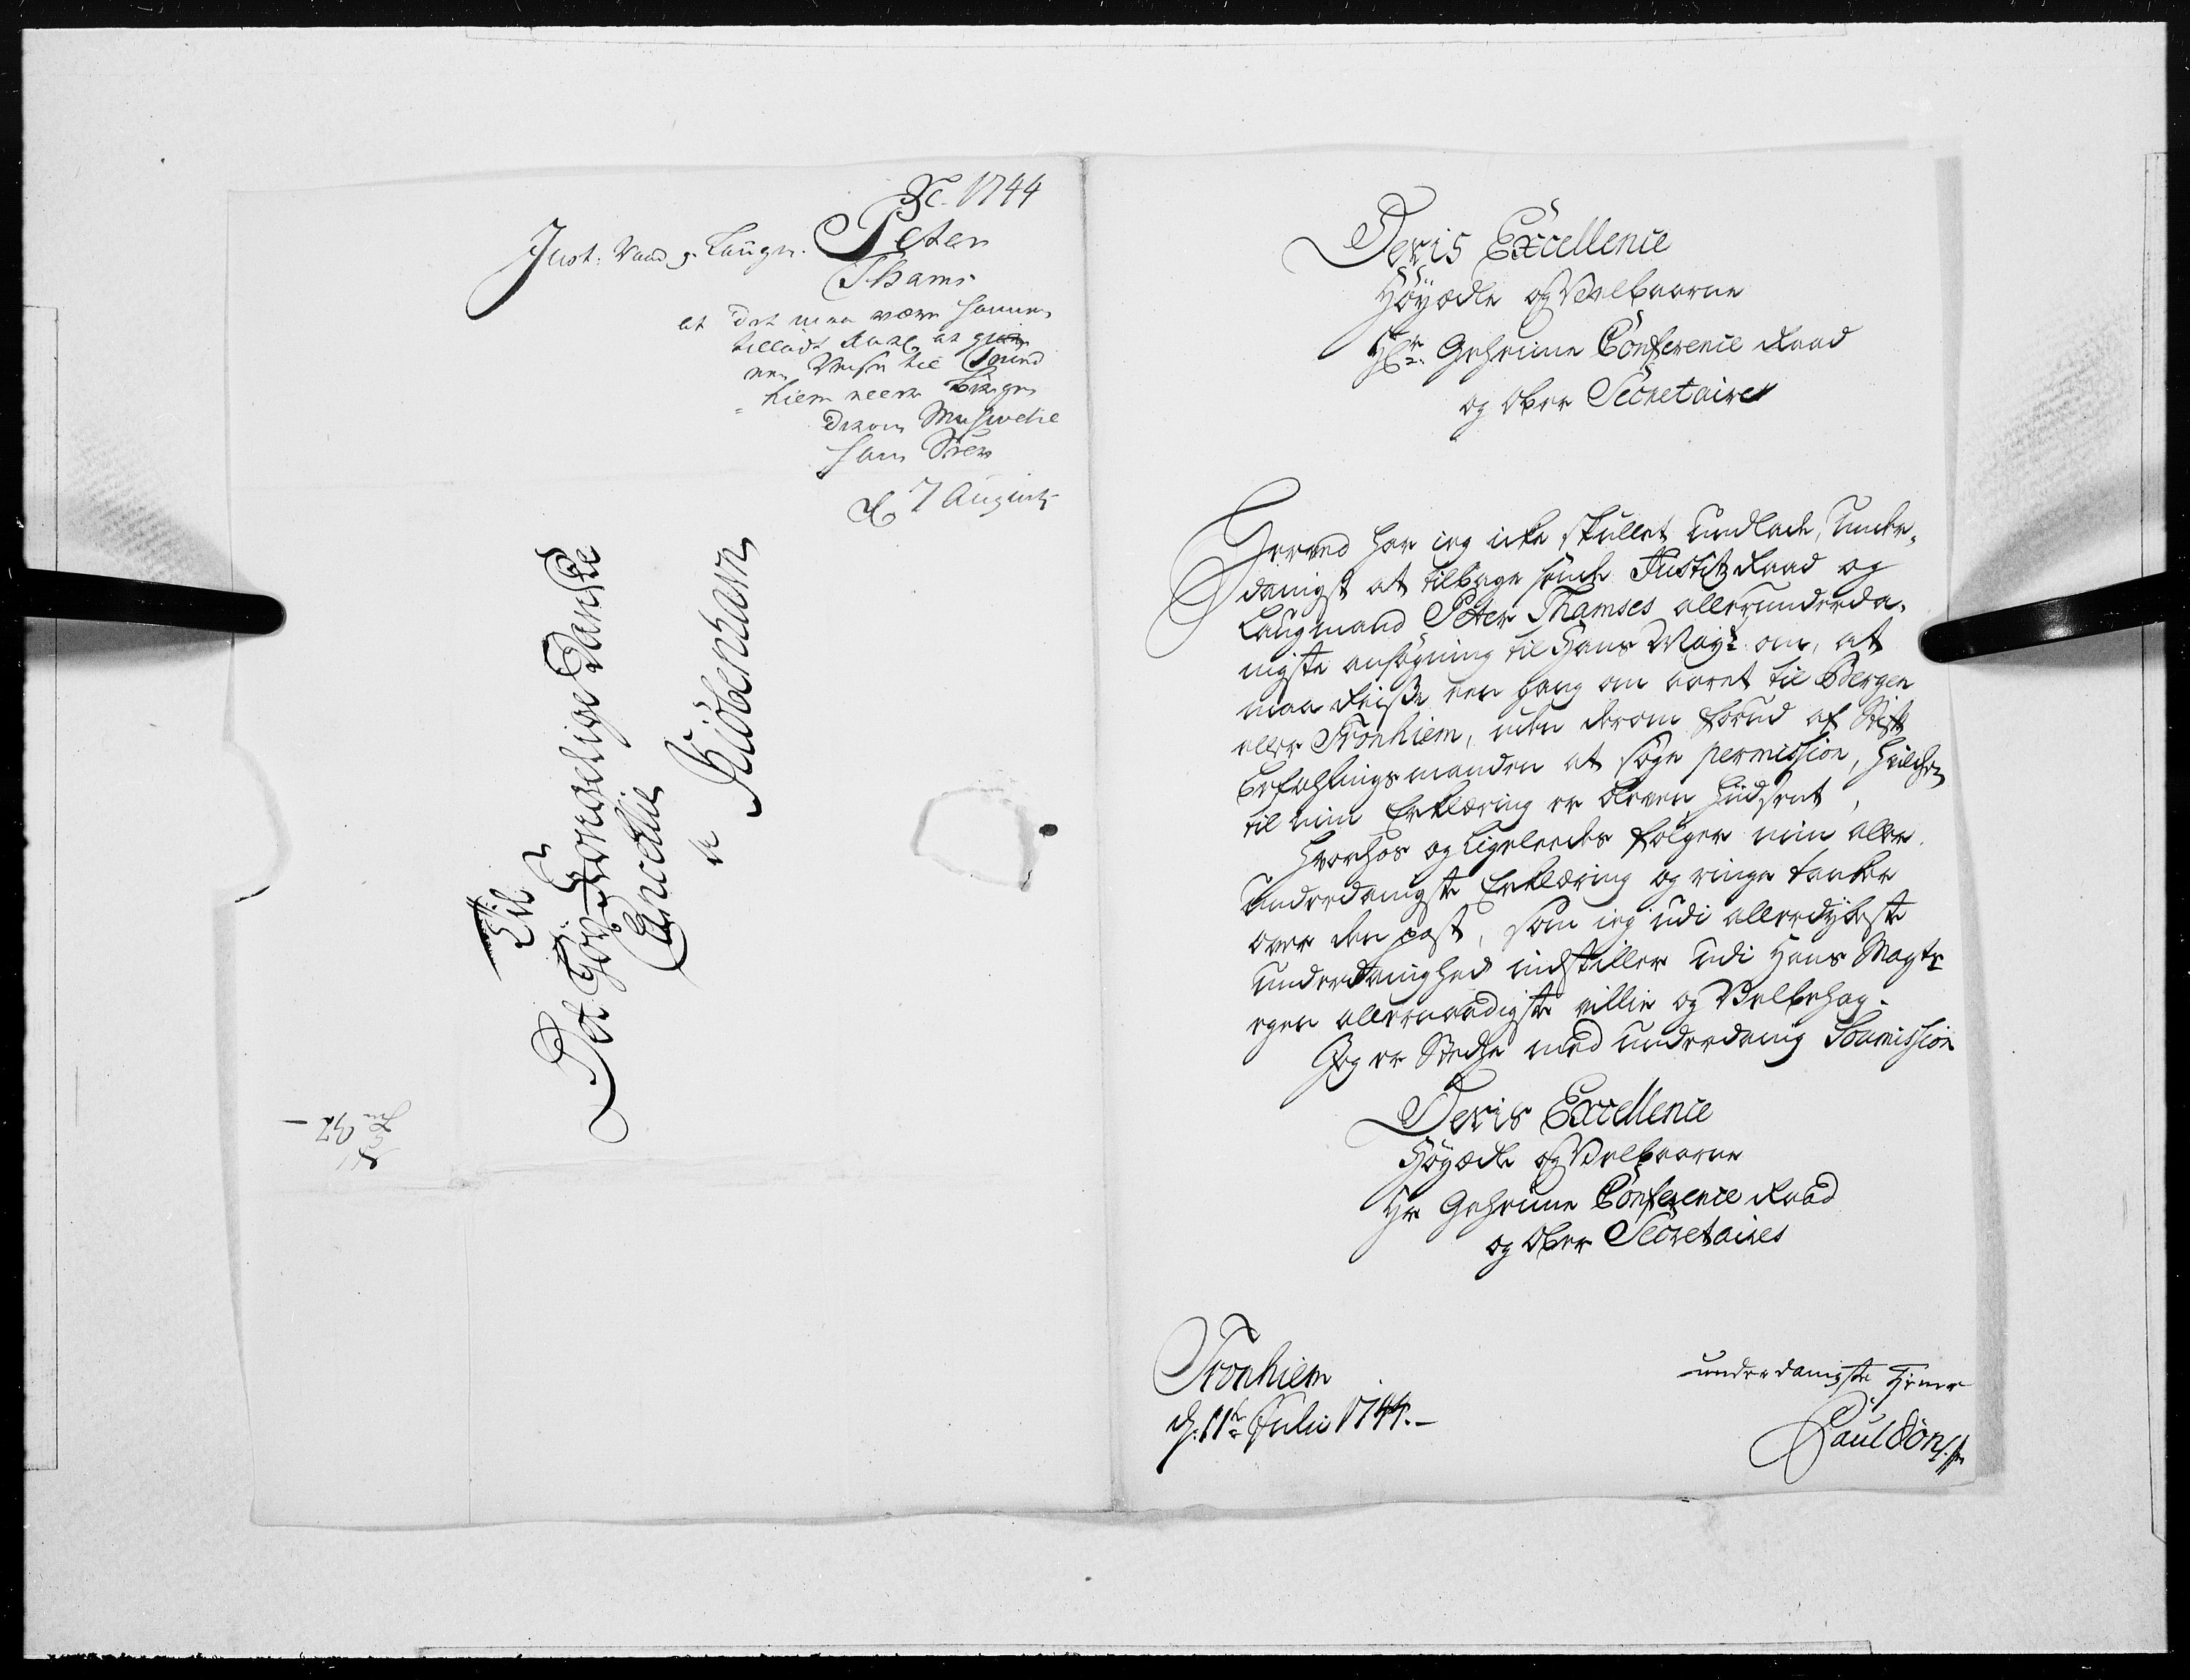 1744
Just: Raad og Laugm. Peter
Thams
at det maa være hannem
tilladt aarl. at giøre
een Reise til Trond
hiem eller Bergen
d 7 August
Til
Det Höy-Kongelige Danske
Cancellie
a Kiöbenhavn
Deris Excellence
Höyædle og Velbaarne
Hr. Geheime Conference Raad
og Ober Secretaire
Herved har jeg icke skullet undlade, under-
danigst at tilbage sende Justitz Raad og
Laugmand Peter Thamses allerunderda-
nigste ansögning til Hans Mayt. om, at
maa Reise een gang om aaret til Bergen
eller Tronhiem, uden derom forud af Stift
befahlingsmanden at søge permission, hvilchen
til min Erklæring er bleven hidsent,
hvorhos og ligeleedes følger min aller-
underdanigste Erklæring og ringe tanker
over den post, som jeg udi allerdybeste
underdanighed indstiller udi Hans Mayts
egen allernaadigste villie og Velbehag.
Jeg er Stedse med underdanig Soumission
Deris Excellence
Höyædle og Velbaarne
Hr Geheime Conference Raad
og Ober Secretaires
Tronhiem
d. 11te Julii 1744.
underdanigste Tiener